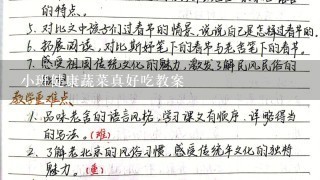 的特点。
5. 对比文中孩子们过春节的情景,说说自己是怎样过春节的.
6. 拓展阅读,对比斯妤笔下的春节与老舍笔下的春节.
7. 感受祖国传统文化的魅力,激发了解民风民俗的
小班健康蔬菜真好吃教案
教学重难点、
1. 品味老舍的语言风格,学习课文有顺序、详略得当
的写法。(难)
2. 了解老北京的风俗习惯,感受传统年文化的独特
魅力。(重)